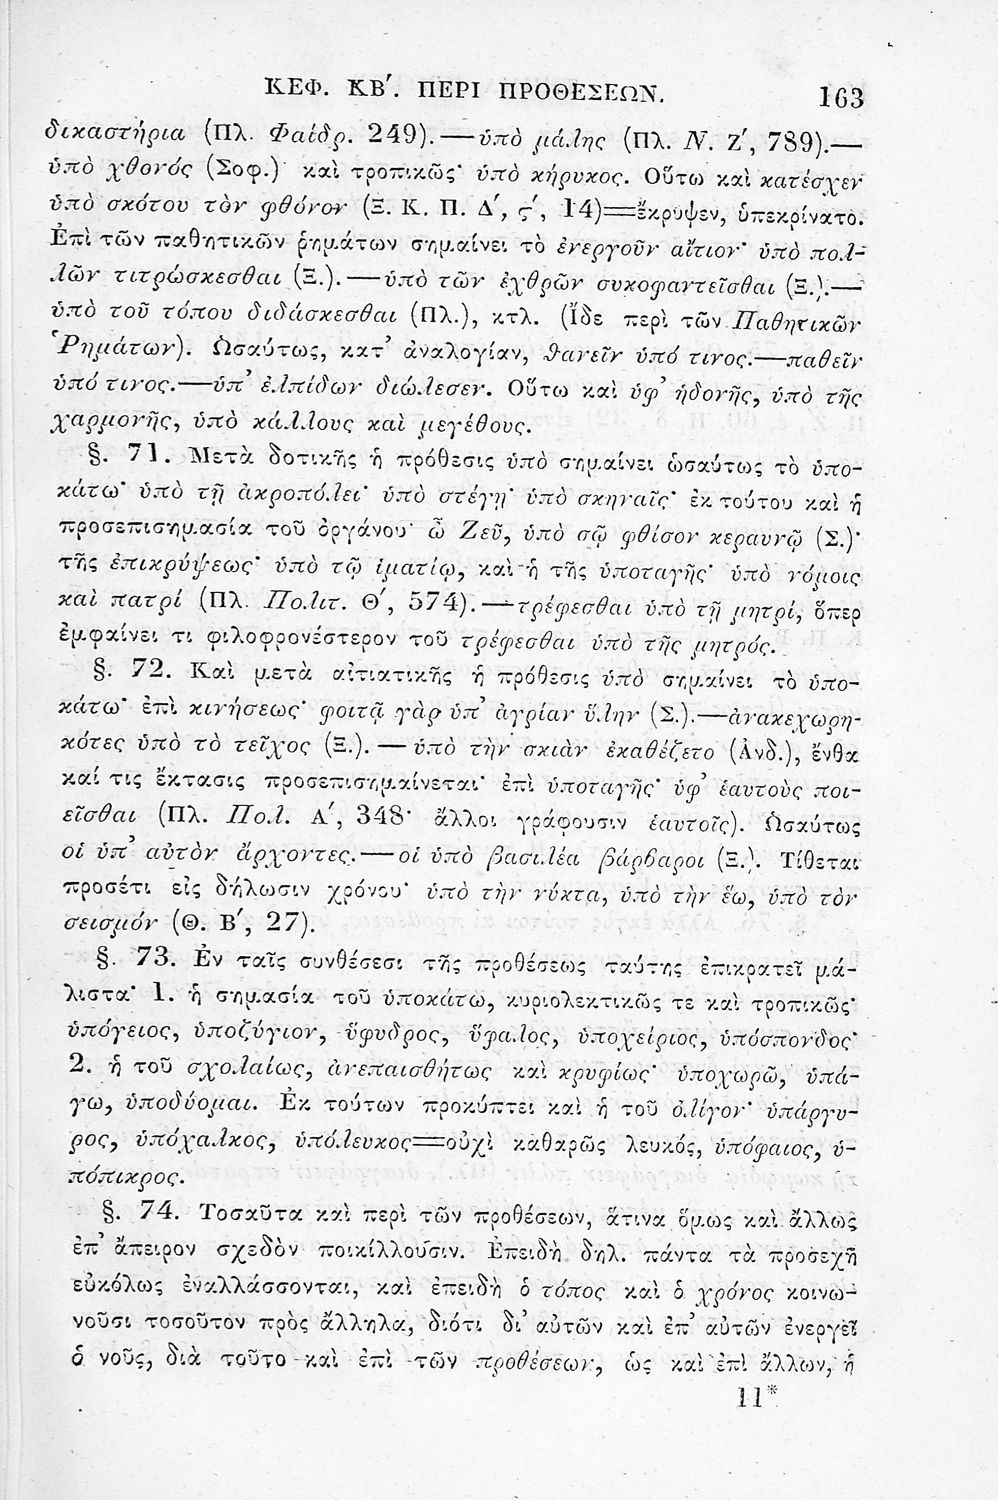 ΚΕΦ. ΚΒ′. ΠΕΡΙ ΠΡΟΘΕΣΕΩΝ. 163
δικαστήρια (Πλ. Φαίδρ. 249).—ὑπὸ μάλης (Πλ. Ν. Ζ′, 789).—
ὑπὸ χθονός (Σοφ.)· καὶ τροπικῶς· ὑπὸ κήρυκος. Οὕτω καὶ κατέσχεν
ὑπὸ σκότου τὸν φθόνον (Ξ. Κ. Π. Δ′, ς′, 14)=ἔκρυψεν, ὑπεκρίνατο.
Ἐπὶ τῶν παθητικῶν ῥημάτων σημαίνει τὸ ἐνεργοῦν αἴτιον· ὑπὸ πολ-
λῶν τιτρώσκεσθαι (Ξ.).—ὑπὸ τῶν ἐχθρῶν συκοφαντεῖσθαι (Ξ.).—
ὑπὸ τοῦ τόπου διδάσκεσθαι (Πλ.), κτλ. (Ἴδε περὶ τῶν Παθητικῶν
Ῥημάτων). Ὡσαύτως, κατ’ ἀναλογίαν, θανεῖν ὑπό τινος.—παθεῖν
ὑπό τινος.—ὑπ’ ἐλπίδων διώλεσεν. Οὕτω καὶ ὑφ’ ἡδονῆς, ὑπὸ τῆς
χαρμονῆς, ὑπὸ κάλλους καὶ μεγέθους.
§. 71. Μετὰ δοτικῆς ἡ πρόθεσις ὑπὸ σημαίνει ὡσαύτως τὸ ὑπο-
κάτω· ὑπὸ τῇ ἀκροπόλει· ὑπὸ στέγῃ· ὑπὸ σκηναῖς· ἐκ τούτου καὶ ἡ
προσεπισημασία τοῦ ὀργάνου· ὦ Ζεῦ, ὑπὸ σῷ φθίσον κεραυνῷ (Σ.)·
τῆς ἐπικρύψεως· ὑπὸ τῷ ἱματίῳ, καὶ ἡ τῆς ὑποταγῆς· ὑπὸ νόμοις
καὶ πατρί (Πλ. Πολιτ. Θ′, 574).—τρέφεσθαι ὑπὸ τῇ μητρί, ὅπερ
ἐμφαίνει τι φιλοφρονέστερον τοῦ τρέφεσθαι ὑπὸ τῆς μητρός.
§. 72. Καὶ μετὰ αἰτιατικῆς ἡ πρόθεσις ὑπὸ σημαίνει τὸ ὑπο-
κάτω· ἐπὶ κινήσεως· φοιτᾷ γὰρ ὑπ’ ἀγρίαν ὕλην (Σ.).—ἀνακεχωρη-
κότες ὑπὸ τὸ τεῖχος (Ξ.).—ὑπὸ τὴν σκιὰν ἐκαθέζετο (Ἀνδ.), ἔνθα
καί τις ἔκτασις προσεπισημαίνεται· ἐπὶ ὑποταγῆς· ὑφ’ ἑαυτοὺς ποι-
εῖσθαι (Πλ. Πολ. Α′, 348· ἄλλοι γράφουσιν ἑαυτοῖς). Ὡσαύτως
οἱ ὑπ’ αὐτὸν ἄρχοντες.—οἱ ὑπὸ βασιλέα βάρβαροι (Ξ.). Τίθεται
προσέτι εἰς δήλωσιν χρόνου· ὑπὸ τὴν νύκτα, ὑπὸ τὴν ἕω, ὑπὸ τὸν
σεισμόν (Θ. Β′, 27).
§. 73. Ἐν ταῖς συνθέσεσι τῆς προθέσεως ταύτης ἐπικρατεῖ μά-
λιστα· 1. ἡ σημασία τοῦ ὑποκάτω, κυριολεκτικῶς τε καὶ τροπικῶς·
ὑπόγειος, ὑποζύγιον, ὕφυδρος, ὕφαλος, ὑποχείριος, ὑπόσπονδος·
2. ἡ τοῦ σχολαίως, ἀνεπαισθήτως καὶ κρυφίως· ὑποχωρῶ, ὑπά-
γω, ὑποδύομαι. Ἐκ τούτων προκύπτει καὶ ἡ τοῦ ὀλίγον· ὑπάργυ-
ρος, ὑπόχαλκος, ὑπόλευκος=οὐχὶ καθαρῶς λευκός, ὑπόφαιος, ὑ-
πόπικρος.
§. 74. Τοσαῦτα καὶ περὶ τῶν προθέσεων, ἅτινα ὅμως καὶ ἄλλως
ἐπ’ ἄπειρον σχεδὸν ποικίλλουσιν. Ἐπειδὴ δηλ. πάντα τὰ προσεχῆ
εὐκόλως ἐναλλάσσονται, καὶ ἐπειδὴ ὁ τόπος καὶ ὁ χρόνος κοινω-
νοῦσι τοσοῦτον πρὸς ἄλληλα, διότι δι’ αὐτῶν καὶ ἐπ’ αὐτῶν ἐνεργεῖ
ὁ νοῦς, διὰ τοῦτο καὶ ἐπὶ τῶν προθέσεων, ὡς καὶ ἐπὶ ἄλλων, ἡ
11*